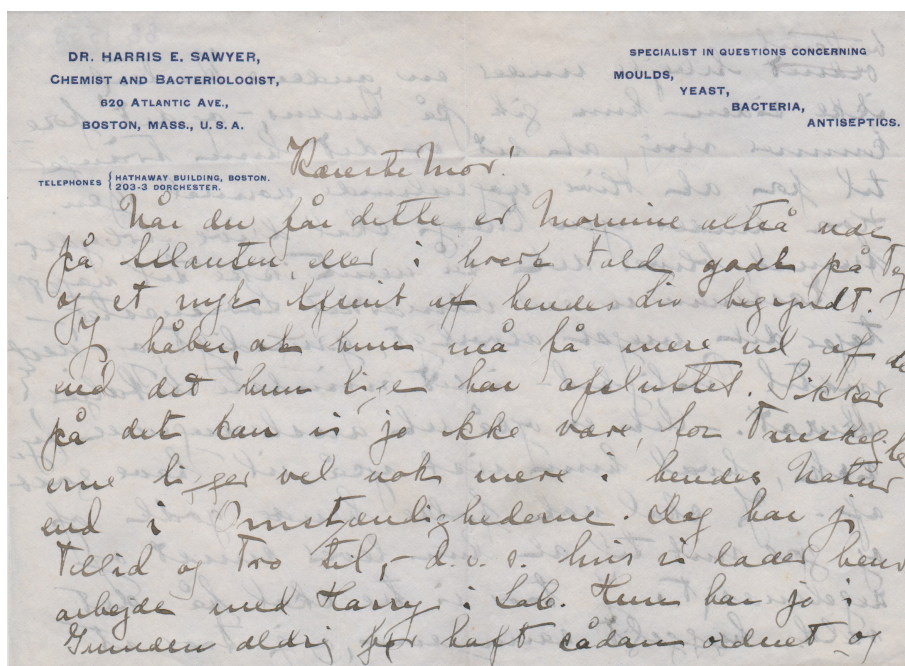 DR. HARRIS E. SAWYER,
CHEMIST AND BACTERIOLOGIST,
620 ATLANTIC AVE.,
BOSTON, MASS., U. S. A.
SPECIALIST IN QUESTIONS CONCERNING
MOULDS,
YEAST,
BACTERIA,
ANTISEPTICS.
TELEPHONES { HATHAWAY BUILDING, BOSTON.
203-3 DORCHESTER.
Kæreste Mor!
Når du får dette er Mornine altså ude
på Atlanten, eller i hvert Fald godt på Vej
og et nyt Afsnit af hendes Liv begyndt.
Jeg håber, at hun må få mere ud af det
end det hun lige har afsluttet. Sikker
på det kan vi jo ikke være, for Vanskelighed
erne ligger vel nok mere i hendes Natur
end i Omstændighederne. Jeg har jo
Tillid og Tro til, - d.v.s. hvis vi lader hende
arbejde med Harry i Lab. Hun har jo i
Grunden aldrig før haft sådan ordnet og